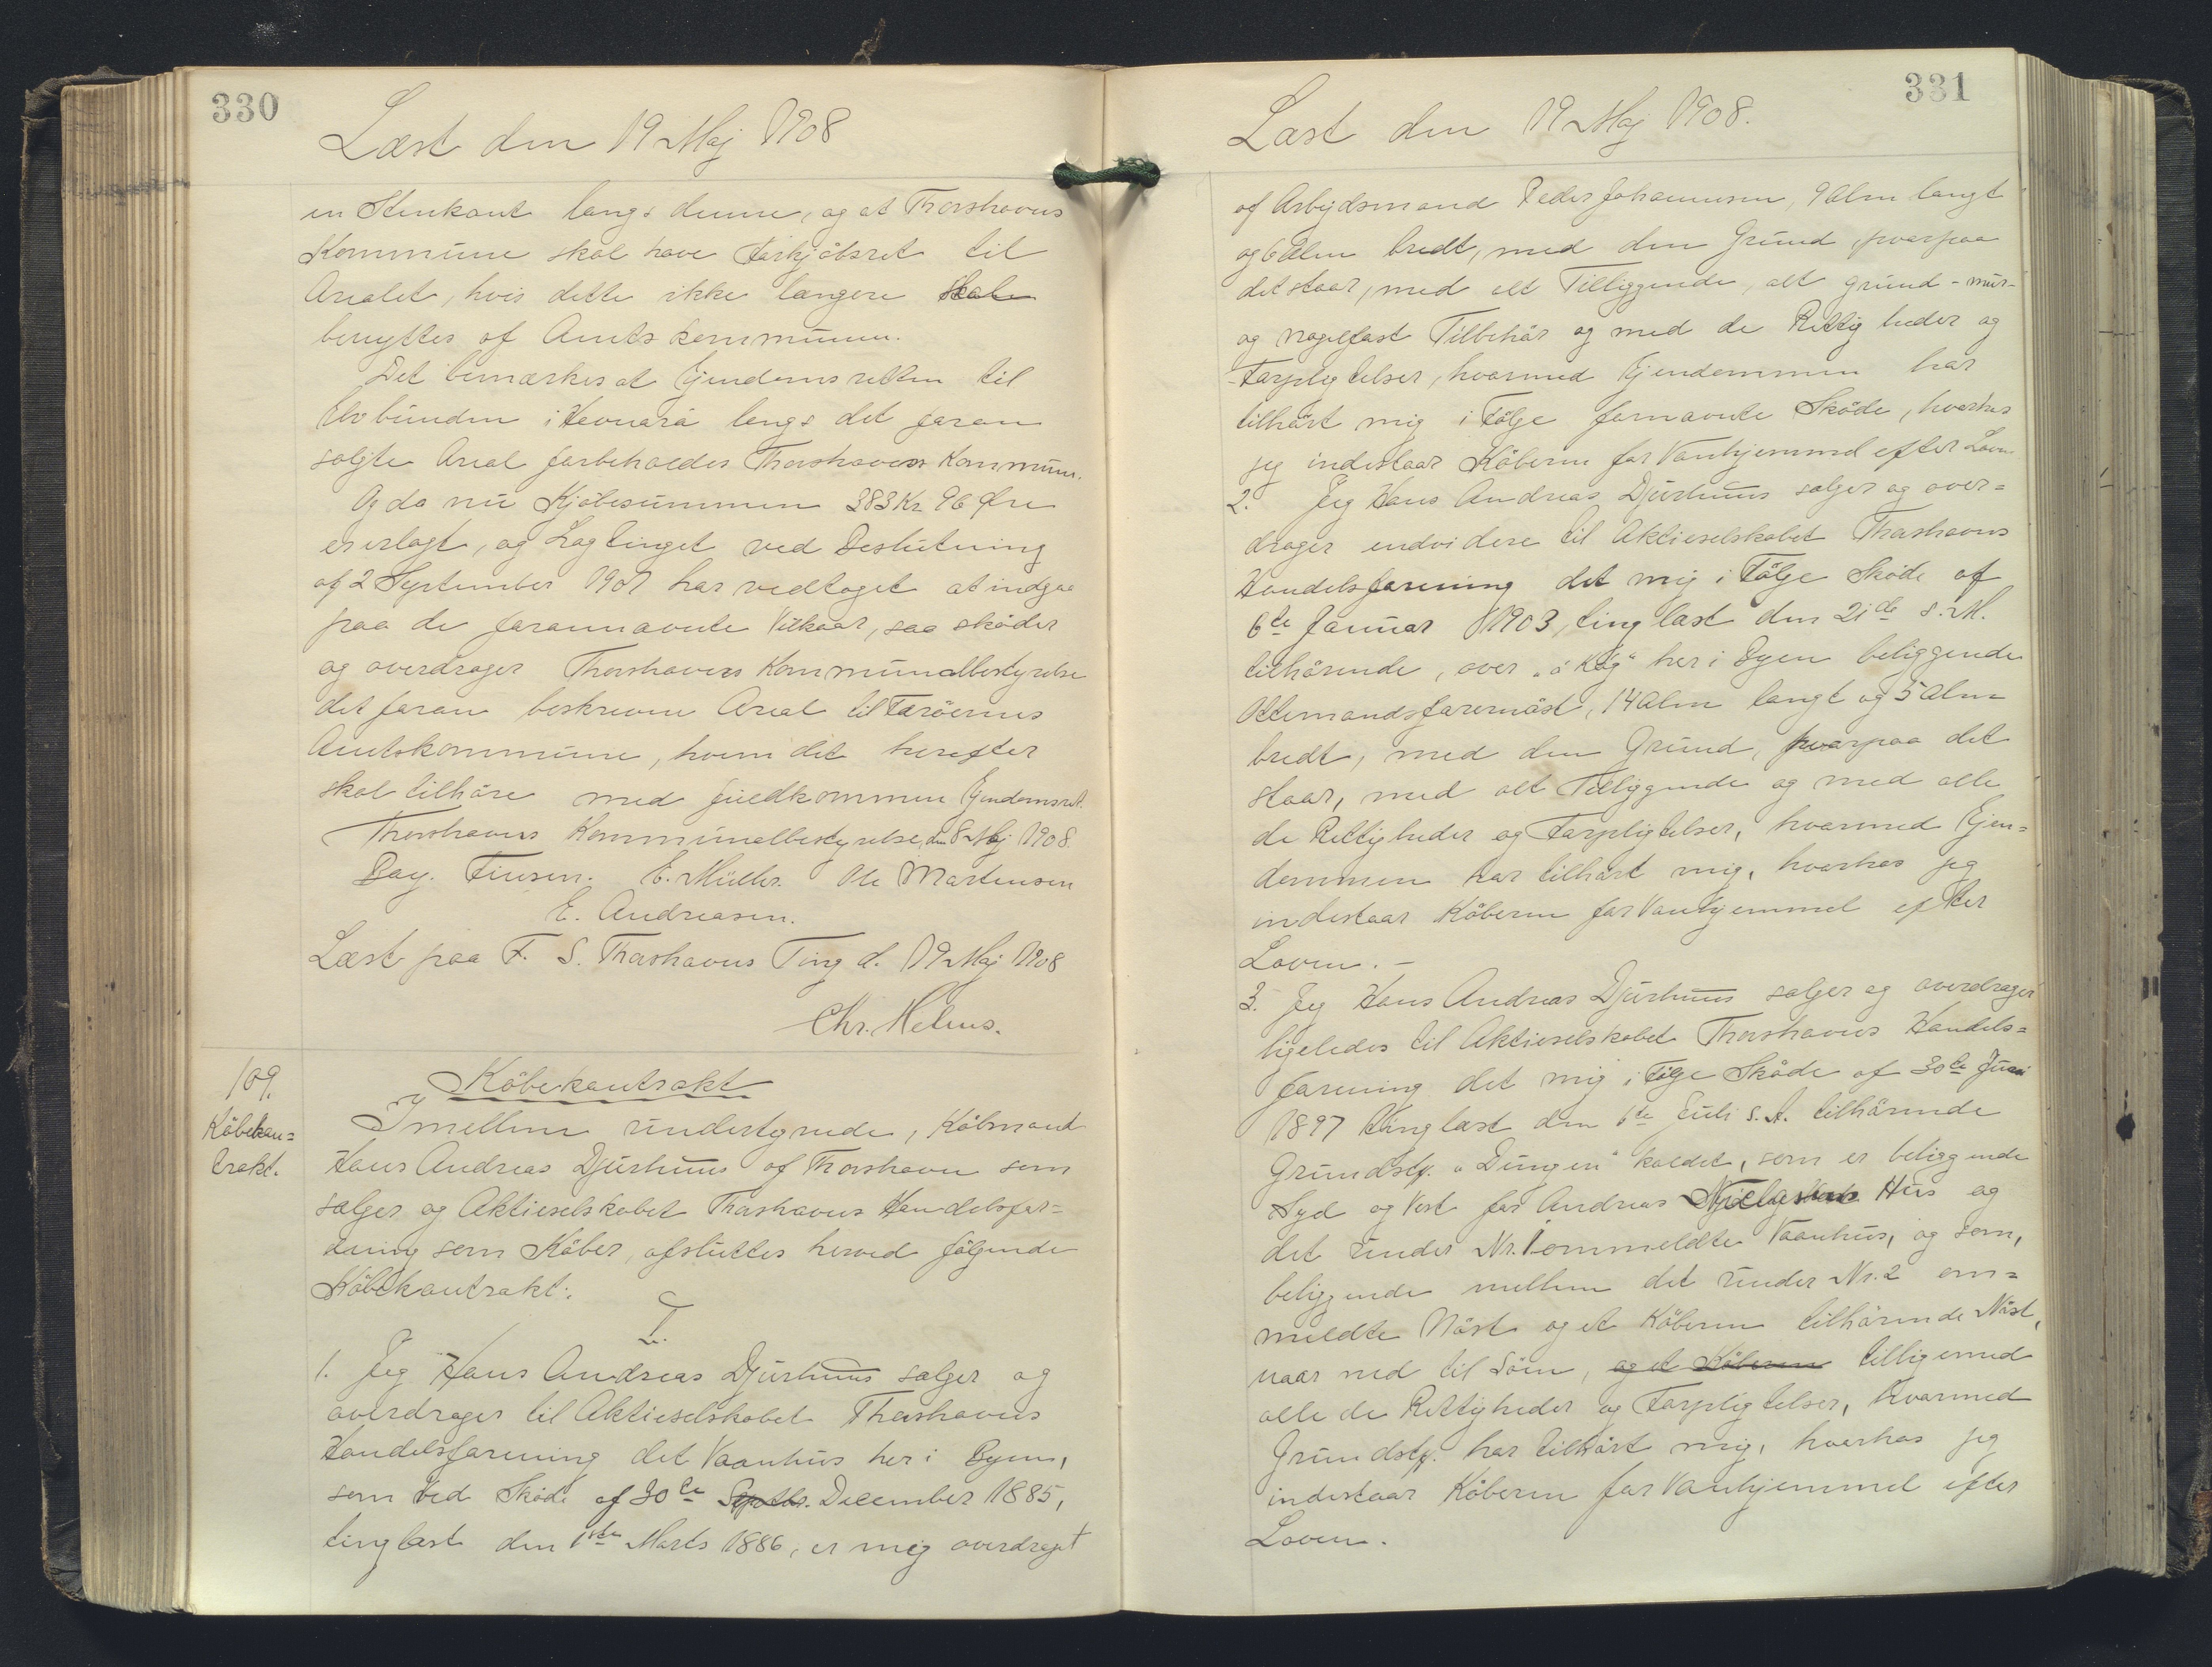 330
Læst den 19 Maj 1908
en Stenkant langs denne, og at Thorshavns
Kommune skal have Forkjøbsret til
Arealet, hvis dette ikke længere skal
benyttes af Amtskommunen.
Det bemærkes at Ejendomsretten til
Elvbunden i Havnará langs det foran
solgte Areal forbeholdes Thorshavns Kommune.
Og da nu Kjøbesummen 383 Kr 96 Øre
er erlagt, og Lagtinget ved Beslutning
af 2 September 1907 har vedtaget at indgaa
paa de forannævnte Vilkaar, saa skøder
og overdrager Thorshavns Kommunalbestyrelse
det foran beskrevne Areal til Færøernes
Amtskommune, hvem det herefter
skal tilhøre med fuldkommen Ejendomsret.
Thorshavns Kommunalbestyrelse, den 8 Maj 1908.
Day. Finsen. E. Müller. Ole Martensen
E. Andreasen.
Læst paa F. S. Thorshavns Ting d. 19 Maj 1908
Chr. Helms.
109.
Købekon=
trakt.
Købekontrakt
Imellem undertegnede, Købmand
Hans Andreas Djurhuus af Thorshavn som
sælger og Aktieselskabet Thorshavns Handelsfor=
ening som Køber, afsluttes herved følgende
Købekontrakt:
I.
1. Jeg Hans Andreas Djurhuus sælger og
overdrager til Aktieselskabet Thorshavns
Handelsforening det Vaanhus her i Byen,
som ved Skøde af 30te Septbr. December 1885,
tinglæst den 1ste Marts 1886, er mig overdraget
331
Læst den 19 Maj 1908.
af Arbejdsmand Peder Johannesen, 9 Alen langt
og 6 Alen bredt, med den Grund, hvorpaa
det staar, med alt Tilliggende, alt grund- mur-
og nagelfast Tilbehør og med de Rettigheder og
Forpligtelser, hvormed Ejendommen har
tilhørt mig i Følge fornævnte Skøde, hvorhos
jeg indestaar Køberen for Vanhjemmel efter Loven.
2. Jeg Hans Andreas Djurhuus sælger og over=
drager endvidere til Aktieselskabet Thorshavns
Handelsforening det mig i Følge Skøde af
6te Januar 1903, tinglæst den 21de s. M.
tilhørende, over "á Køg" her i Byen beliggende
Ottemandsfarsnøst, 14 Alen langt og 5 Alen
bredt, med den Grund, hvorpaa det
staar, med alt Tilliggende og med alle
de Rettigheder og Forpligtelser, hvormed Ejen=
dommen har tilhørt mig, hvorhos jeg
indestaar Køberen for Vanhjemmel efter
Loven. -
3. Jeg Hans Andreas Djurhuus sælger og overdrager
ligeledes til Aktieselskabet Thorshavns Handels=
forening det mig i Følge Skøde af 30te Juni
1897 tinglæst den 6te Juli s. A. tilhørende
Grundstk. "Dungen" kaldet, som er beliggende
Syd og Vest for Andreas Niclasens Hus og
det under Nr. 1 ommeldte Vaanhus, og som,
beliggende mellem det under Nr. 2 om=
meldte Nøst og et Køberen tilhørende Nøst,
naar ned til Søen, og et Køberen tilligemed
alle de Rettigheder og Forpligtelser, hvormed
Grundstk. har tilhørt mig, hvorhos jeg
indestaar Køberen for Vanhjemmel efter
Loven.